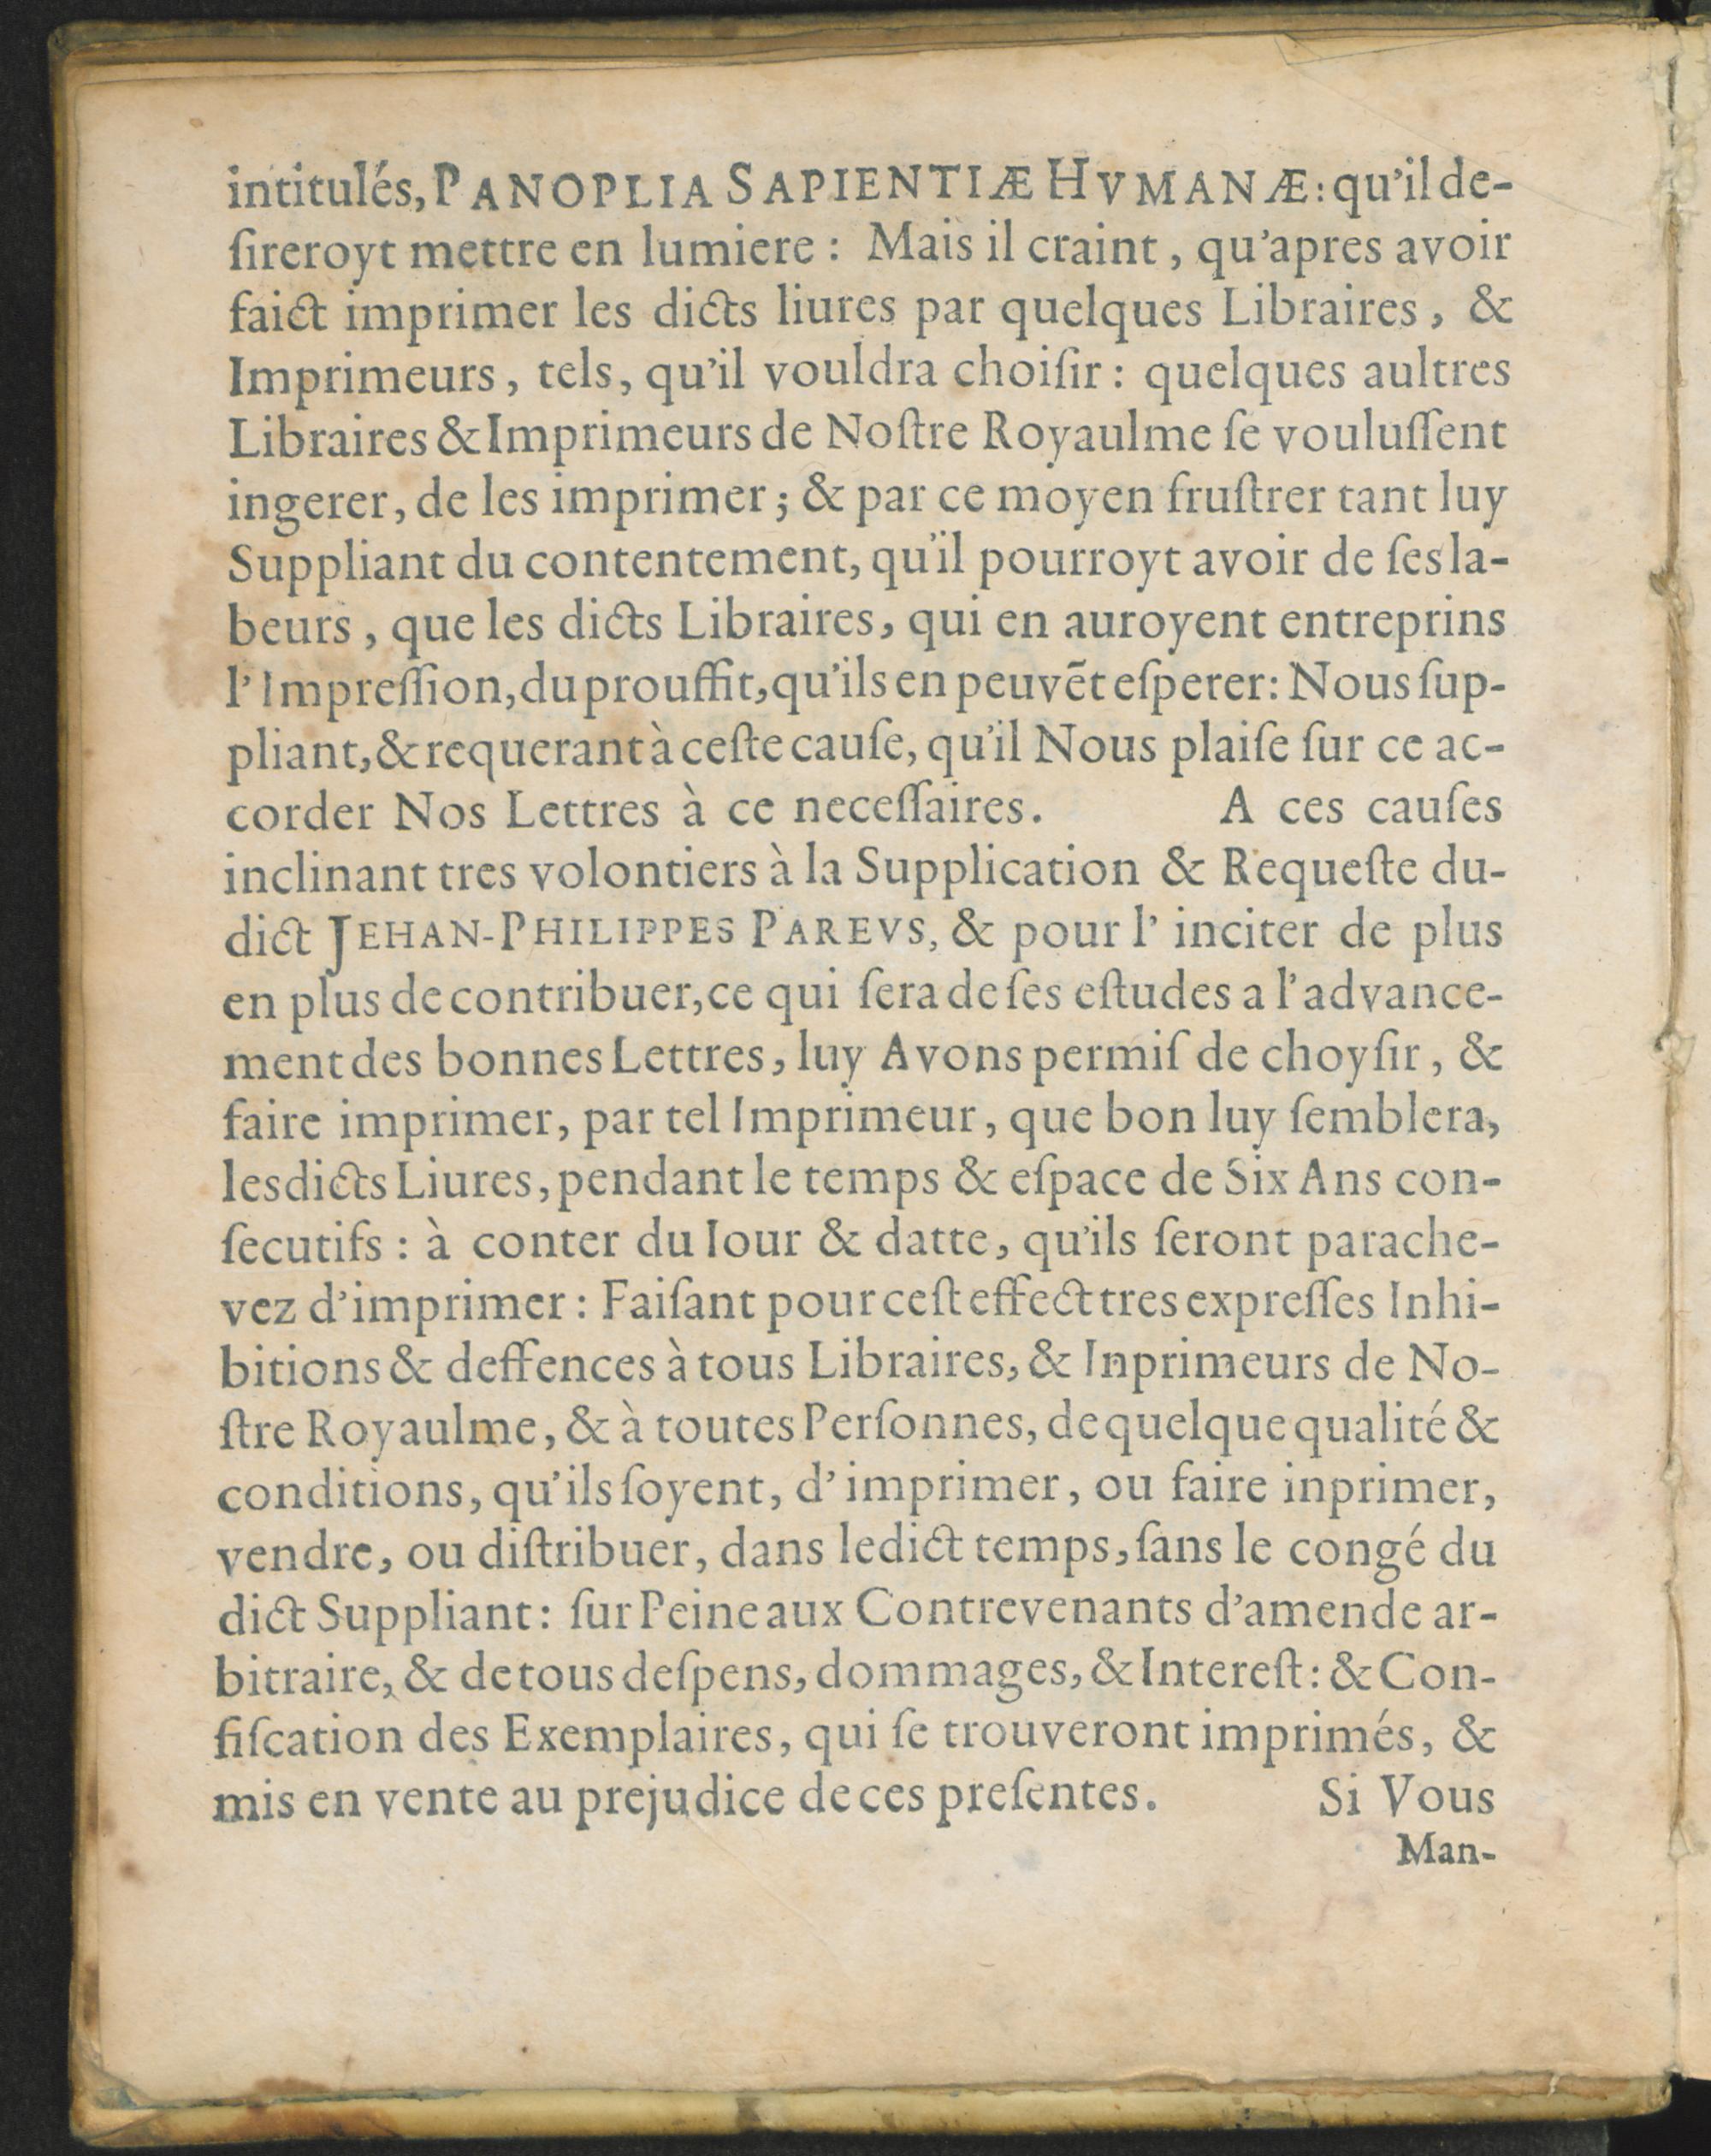 intitulés, PANOPLIA SAPIENTIÆ HVMANÆ: qu'il de-
ſireroyt mettre en lumiere : Mais il craint , qu'apres avoir
faict imprimer les dicts liures par quelques Libraires , &
Imprimeurs , tels, qu'il vouldra choiſir : quelques aultres
Libraires & Imprimeurs de Noſtre Royaulme ſe vouluſſent
ingerer, de les imprimer ; & par ce moyen fruſtrer tant luy
Suppliant du contentement, qu'il pourroyt avoir de ſes la-
beurs , que les dicts Libraires, qui en auroyent entreprins
l' Impreſſion, du prouffit, qu'ils en peuvẽt eſperer: Nous ſup-
pliant, & requerant à ceſte cauſe, qu'il Nous plaiſe ſur ce ac-
corder Nos Lettres à ce neceſſaires. A ces cauſes
inclinant tres volontiers à la Supplication & Requeſte du-
dict JEHAN-PHILIPPES PAREVS, & pour l' inciter de plus
en plus de contribuer, ce qui ſera de ſes eſtudes a l'advance-
ment des bonnes Lettres, luy Avons permiſ de choyſir , &
faire imprimer, par tel Imprimeur , que bon luy ſemblera,
lesdicts Liures, pendant le temps & eſpace de Six Ans con-
ſecutifs : à conter du Iour & datte, qu'ils ſeront parache-
vez d'imprimer : Faiſant pour ceſt effect tres expreſſes Inhi-
bitions & deffences à tous Libraires, & Inprimeurs de No-
ſtre Royaulme, & à toutes Perſonnes, de quelque qualité &
conditions, qu'ils ſoyent, d' imprimer , ou faire inprimer,
vendre, ou diſtribuer, dans ledict temps, ſans le congé du
dict Suppliant : ſur Peine aux Contrevenants d'amende ar-
bitraire, & de tous deſpens, dommages, & Intereſt : & Con-
fiſcation des Exemplaires, qui ſe trouveront imprimés, &
mis en vente au prejudice de ces preſentes. Si Vous
Man-